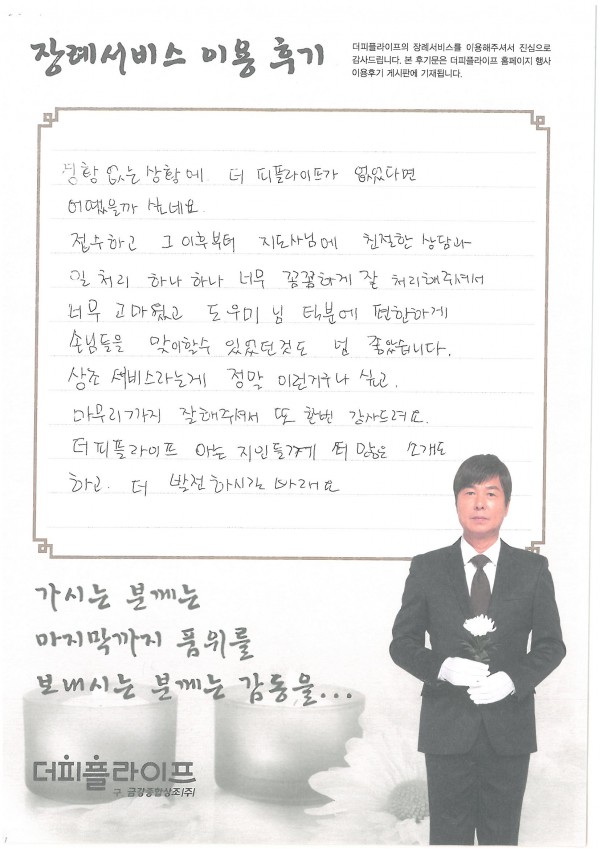 장례서비스 이용 후기
더피플라이프의 장례서비스를 이용해주셔서 진심으로
감사드립니다. 본 후기문은 더피플라이프 홈페이지 행사
이용후기 게시판에 기재됩니다.
경황 없는 상황에 더 피플라이프가 없었다면
어땠을까 싶네요.
접수하고 그 이후부터 지도사님에 친절한 상담과
일 처리 하나 하나 너무 꼼꼼하게 잘 처리해주셔서
너무 고마웠고 도우미 님 덕분에 편한하게
손님들을 맞이할수 있었던것도 넘 좋았습니다.
상조 서비스라는게 정말 이런거구나 싶고.
마무리까지 잘해주셔서 또 한번 감사드려요.
더피플라이프 아는 지인들께 더 많은 소개도
하고. 더 발전하시길 바래요
가시는 분께는
마지막까지 품위를
보내시는 분께는 감동을...
더피플라이프
구. 금강종합상조(주)